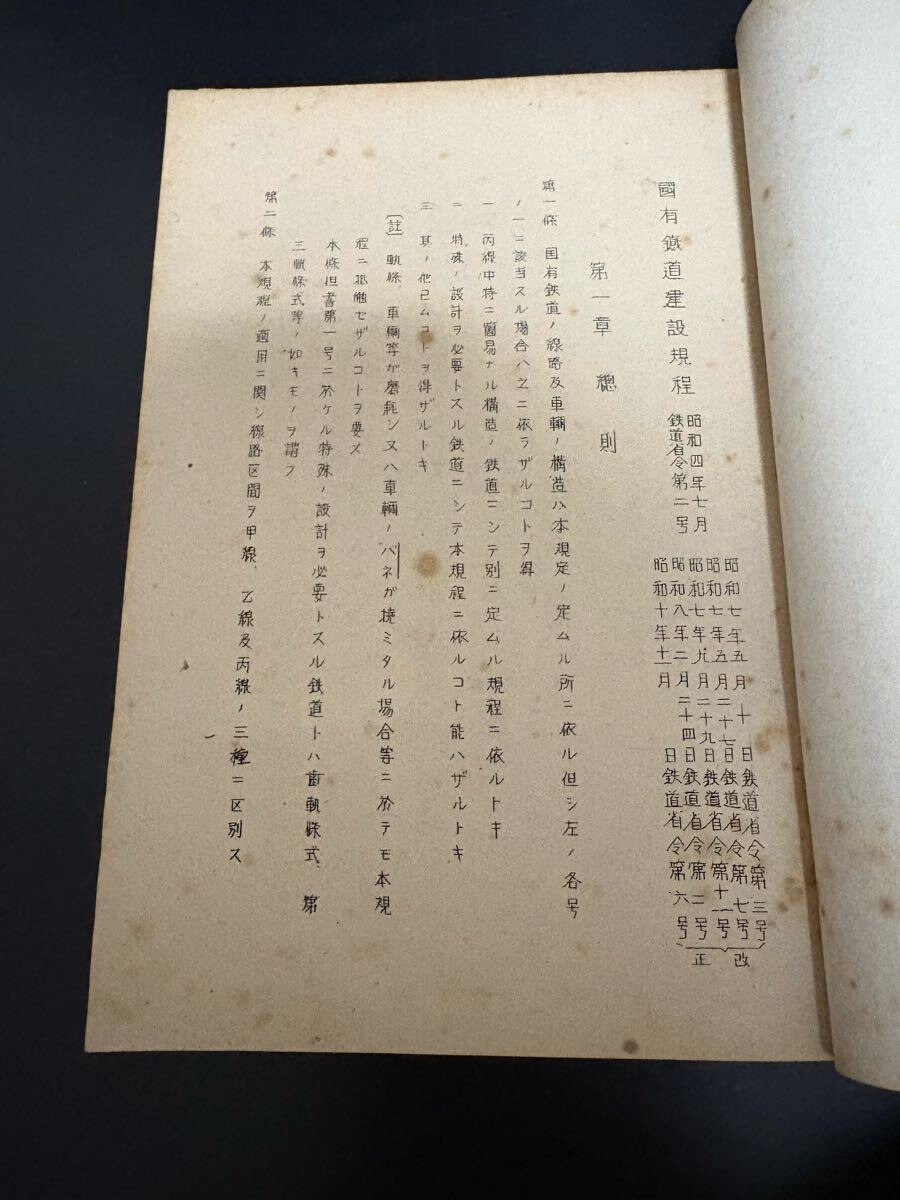 國有鐵道建設規程
昭和四年七月
鉄道省令第二号
昭和七年五月十日鉄道省令第三号
昭和七年五月二十七日鉄道省令第七号
昭和七年九月二十九日鉄道省令第十一号
昭和八年二月二十四日鉄道省令第二号
昭和十年十一月日鉄道省令第六号
改正
第一章 總則
第一條 国有鉄道ノ線路及車輛ノ構造ハ本規定ノ定ムル所ニ依ル但シ左ノ各号
ノ一ニ該当スル場合ハ之ニ依ラザルコトヲ得
一 丙線中特ニ簡易ナル構造ノ鉄道ニシテ別ニ定ムル規程ニ依ルトキ
二 特殊ノ設計ヲ必要トスル鉄道ニシテ本規程ニ依ルコト能ハザルトキ
三 其ノ他已ムコトヲ得ザルトキ
〔註〕 軌條、車輛等が磨耗シ又ハ車輛ノバネが撓ミタル場合等ニ於テモ本規
程ニ抵触セザルコトヲ要ス
本條但書第一号ニ於ケル特殊ノ設計ヲ必要トスル鉄道トハ歯軌條式、第
三軌條式等ノ如キモノヲ謂フ
第二條 本規程ノ適用ニ関シ線路区間ヲ甲線、乙線及丙線ノ三種ニ区別ス
一